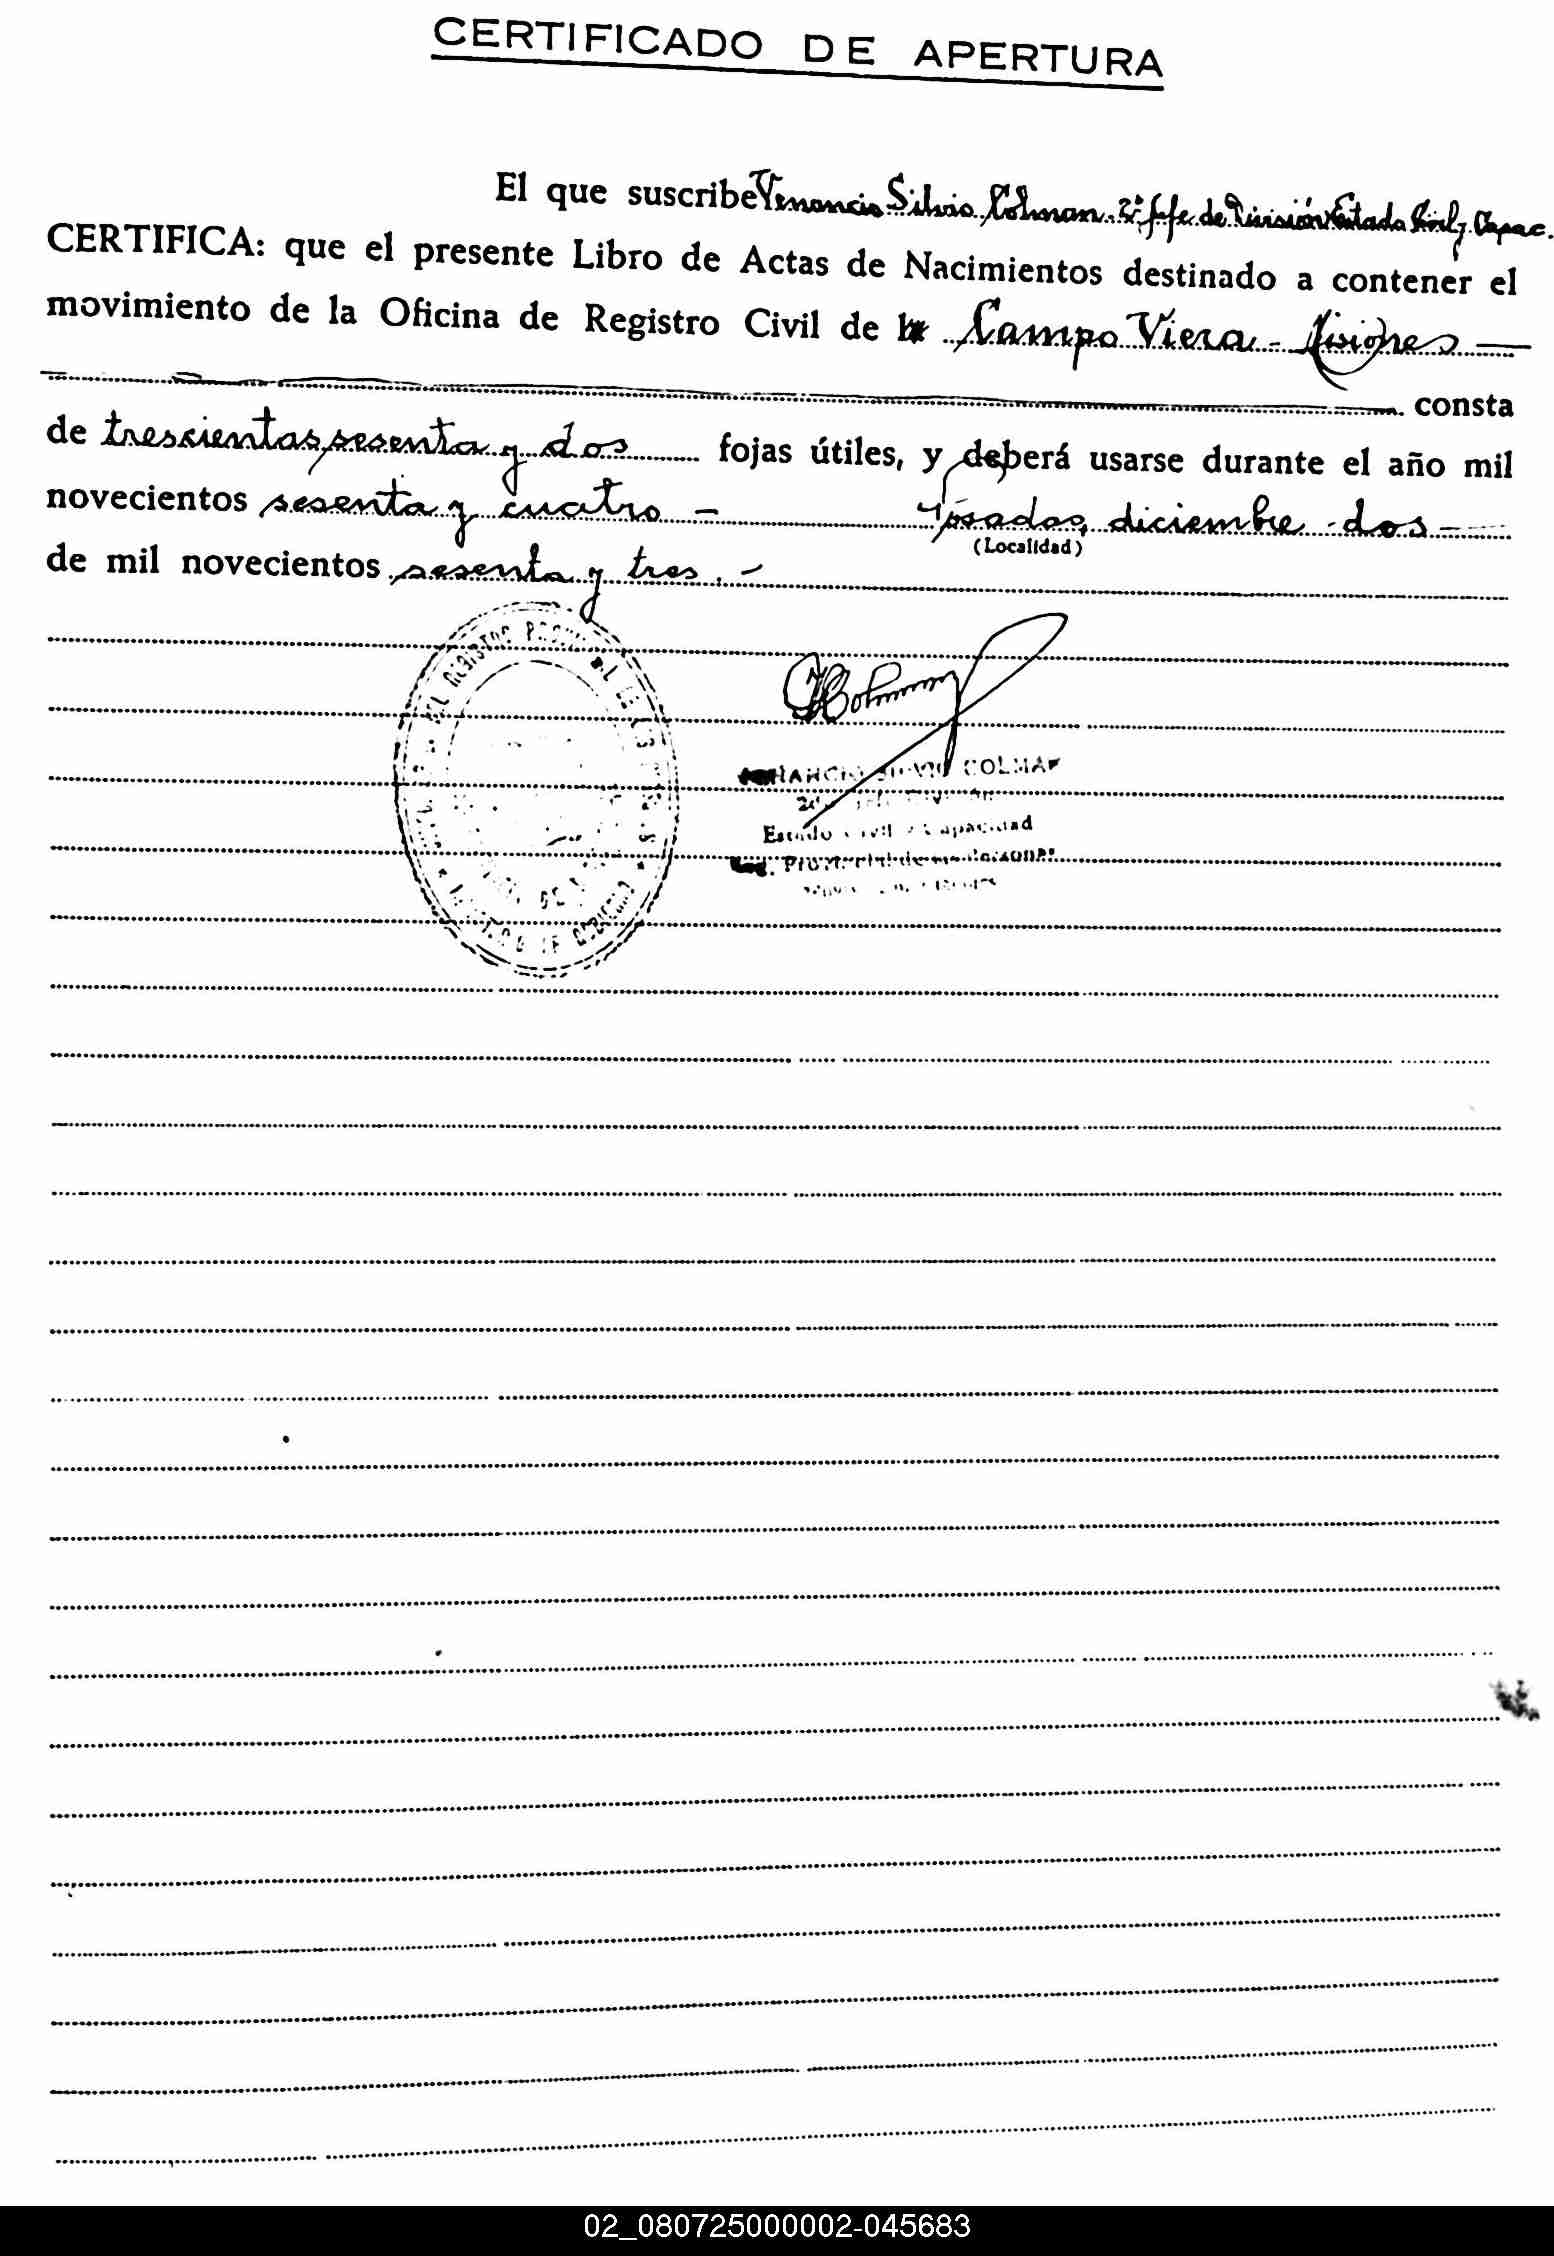 CERTIFICADO DE APERTURA
El que suscribe Venancio Silvio Colman 2º Jefe de División Estado Civil y Capac.
CERTIFICA: que el presente Libro de Actas de Nacimientos destinado a contener el
movimiento de la Oficina de Registro Civil de Campo Viera - Misiones
consta
de trescientas sesenta y dos fojas útiles, y deberá usarse durante el año mil
novecientos sesenta y cuatro - Posadas, diciembre dos
(Localidad)
de mil novecientos sesenta y tres. -
COLMAN
Estado Civil y Capacidad
02_080725000002-045683